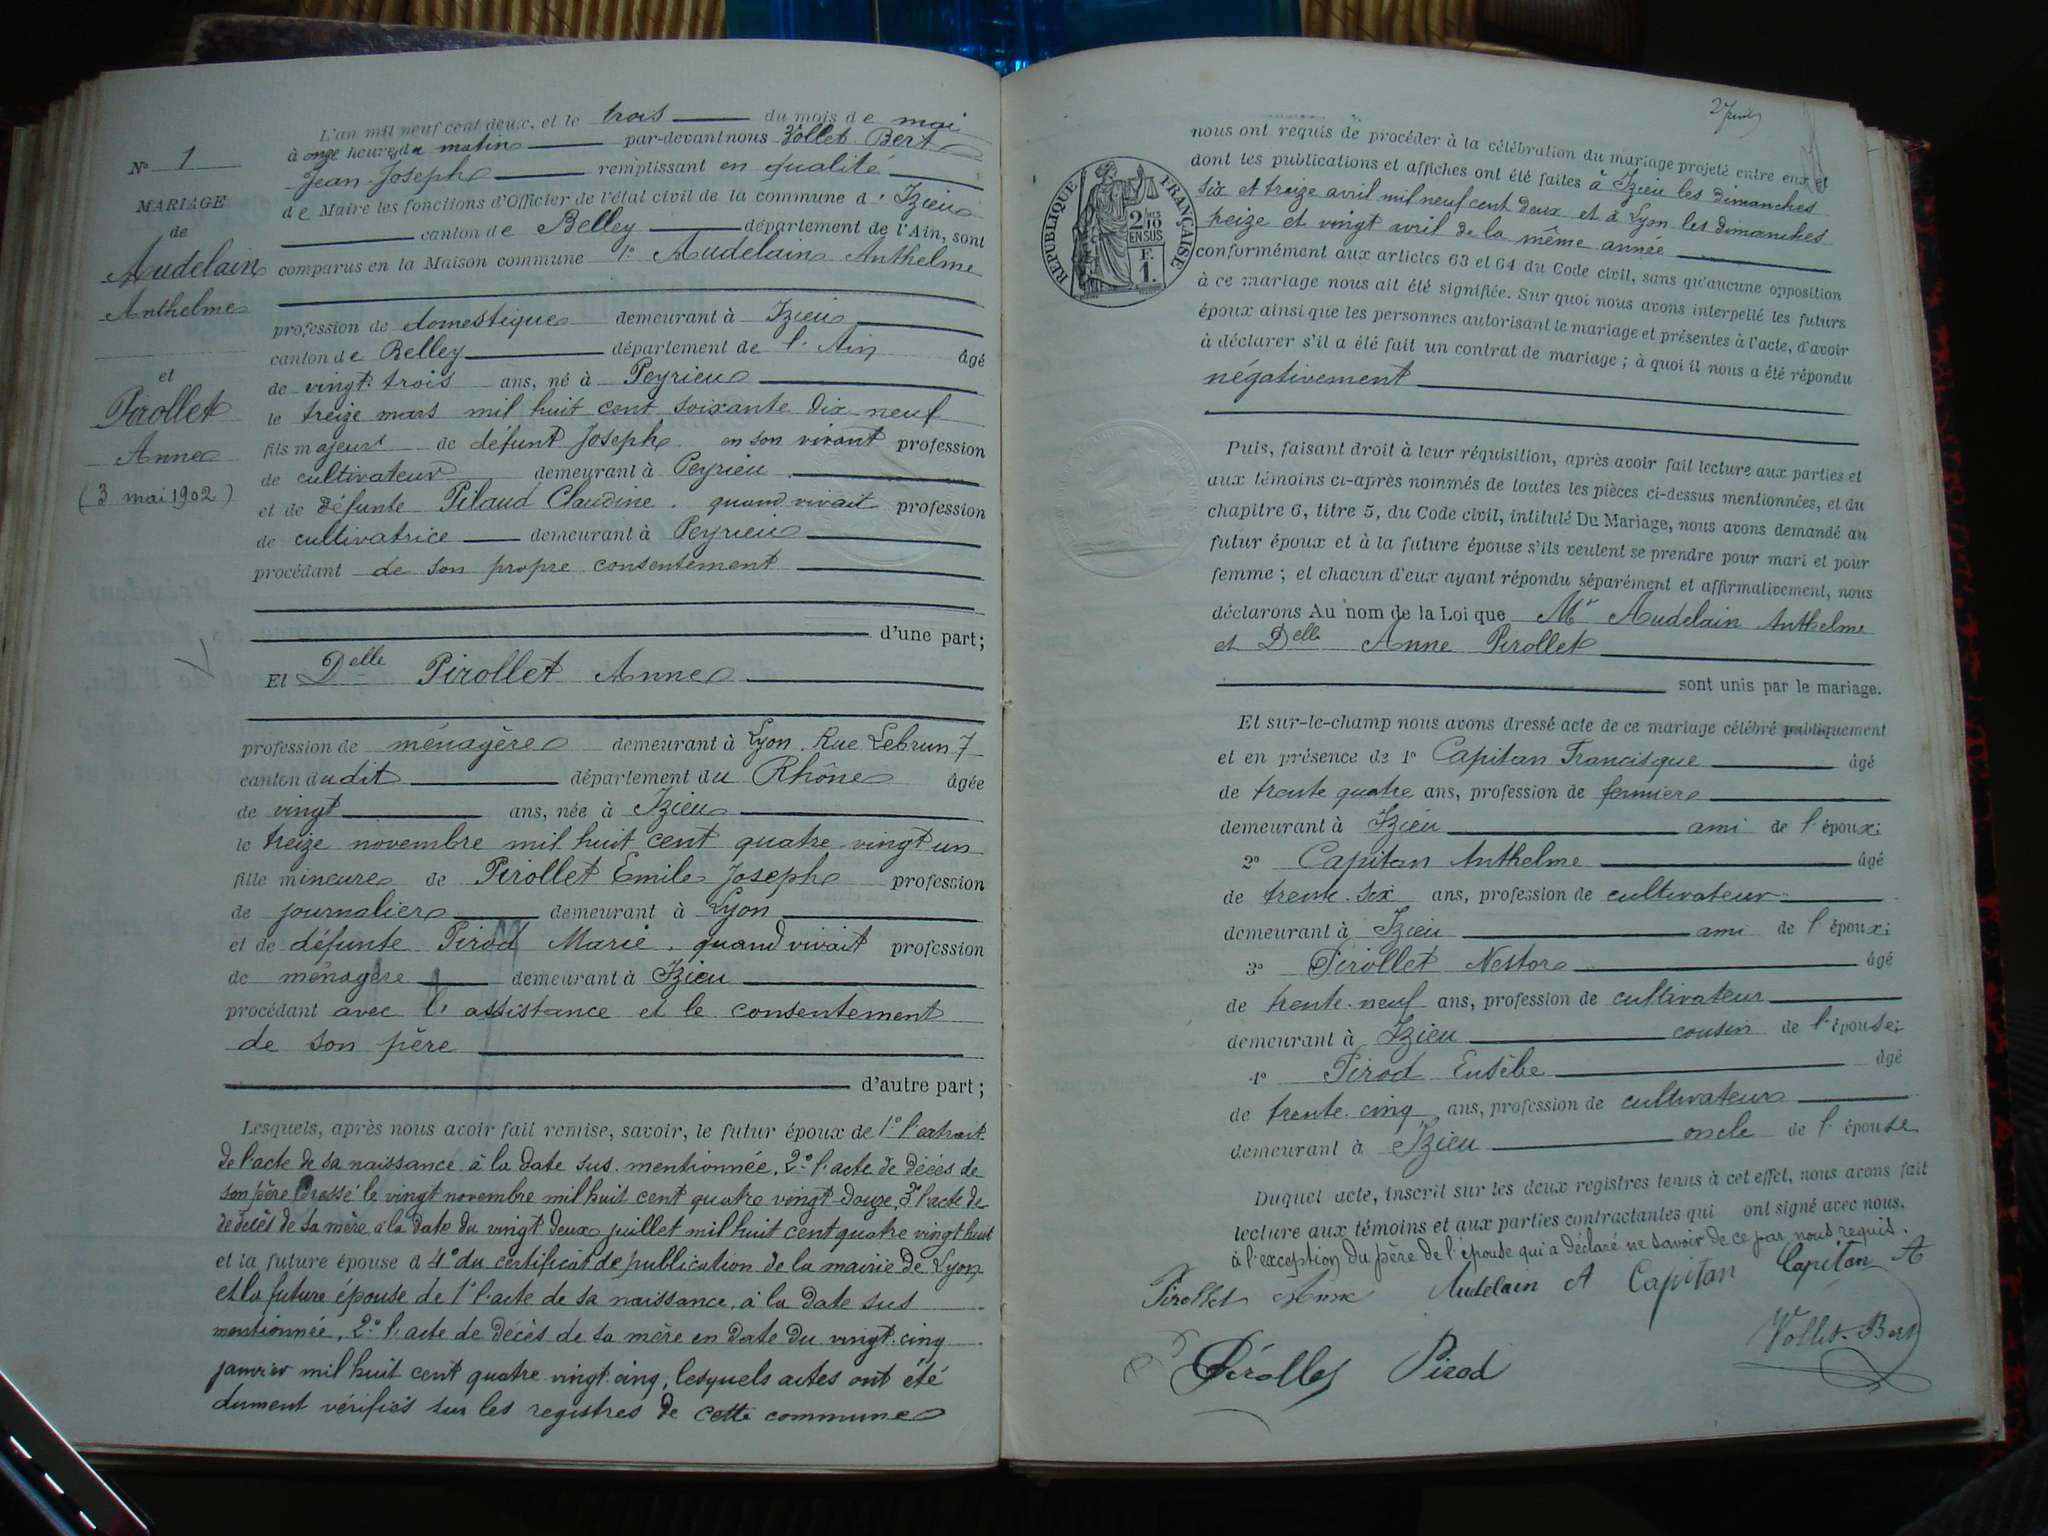 L'an mil neuf cent deux, et le trois du mois de mai
à onze heures du matin par-devant nous Vollet Bert
Jean Joseph remplissant en qualité
de Maire les fonctions d'Officier de l'état civil de la commune d' Izieu
canton de Belley département de l'Ain, sont
comparus en la Maison commune 1° Audelain Anthelme
profession de domestique demeurant à Izieu
canton de Belley département de l' Ain âgé
de vingt-trois ans, né à Peyrieu
le treize mars mil huit cent soixante dix neuf
fils majeur de défunt Joseph en son vivant profession
de cultivateur demeurant à Peyrieu
et de défunte Pilaud Claudine . quand vivait profession
de cultivatrice demeurant à Peyrieu
procédant de son propre consentement
d'une part;
Et Delle Pirollet Anne
profession de ménagère demeurant à Lyon . Rue Lebrun 7
canton dudit département du Rhône âgée
de vingt ans, née à Izieu
le treize novembre mil huit cent quatre-vingt un
fille mineure de Pirollet Emile Joseph profession
de journalier demeurant à Lyon
et de défunte Pirod Marie . quand vivait profession
de ménagère demeurant à Izieu
procédant avec l' assistance et le consentement
de son père
d'autre part;
Lesquels, après nous avoir fait remise, savoir, le futur époux de 1° l'extrait
de l'acte de sa naissance à la date sus-mentionnée, 2° l'acte de décès de
son père dressé le vingt novembre mil huit cent quatre vingt-douze, 3° l'acte de
de décès de sa mère à la date du vingt deux juillet mil huit cent quatre vingt huit
et la future épouse d 4° du certificat de publication de la mairie de Lyon
et la future épouse de 1° l'acte de sa naissance, à la date sus
mentionnée, 2° l'acte de décès de sa mère en date du vingt-cinq
janvier mil huit cent quatre vingt-cinq, lesquels actes ont été
dument vérifiés sur les registres de cette commune
N° 1
MARIAGE
de
Audelain
Anthelme
et
Pirollet
Anne
(3 mai 1902)
nous ont requis de procéder à la célébration du mariage projeté entre eux et
dont les publications et affiches ont été faites à Izieu les dimanches
six et treize avril mil neuf cent deux et à Lyon les dimanches
treize et vingt avril de la même année
conformément aux articles 63 et 64 du Code civil, sans qu'aucune opposition
à ce mariage nous ait été signifiée. Sur quoi nous avons interpellé les futurs
époux ainsi que les personnes autorisant le mariage et présentes à l'acte, d'avoir
à déclarer s'il a été fait un contrat de mariage; à quoi il nous a été répondu
négativement
RÉPUBLIQUE FRANÇAISE
2/10
EN SUS
F.
1.
Puis, faisant droit à leur réquisition, après avoir fait lecture aux parties et
aux témoins ci-après nommés de toutes les pièces ci-dessus mentionnées, et du
chapitre 6, titre 5, du Code civil, intitulé Du Mariage, nous avons demandé au
futur époux et à la future épouse s'ils veulent se prendre pour mari et pour
femme; et chacun d'eux ayant répondu séparément et affirmativement, nous
déclarons Au nom de la Loi que Mr Audelain Anthelme
et Delle Anne Pirollet
sont unis par le mariage.
Et sur-le-champ nous avons dressé acte de ce mariage célébré publiquement
et en présence de 1° Capitan Francisque âgé
de trente quatre ans, profession de fermier
demeurant à Izieu ami de l'époux;
2° Capitan Anthelme âgé
de trente-six ans, profession de cultivateur
demeurant à Izieu ami de l'époux;
3° Pirollet Nestor âgé
de trente-neuf ans, profession de cultivateur
demeurant à Izieu cousin de l'épouse;
4° Pirod Eusèbe âgé
de trente-cinq ans, profession de cultivateur
demeurant à Izieu oncle de l'épouse
Duquel acte, inscrit sur les deux registres tenus à cet effet, nous avons fait
lecture aux témoins et aux parties contractantes qui ont signé avec nous.
à l'exception du père de l'épouse qui a déclaré ne savoir de ce par nous requis.
Pirollet Anne Audelain A Capitan Capitan A
Pirollet Pirod Vollet-Bert